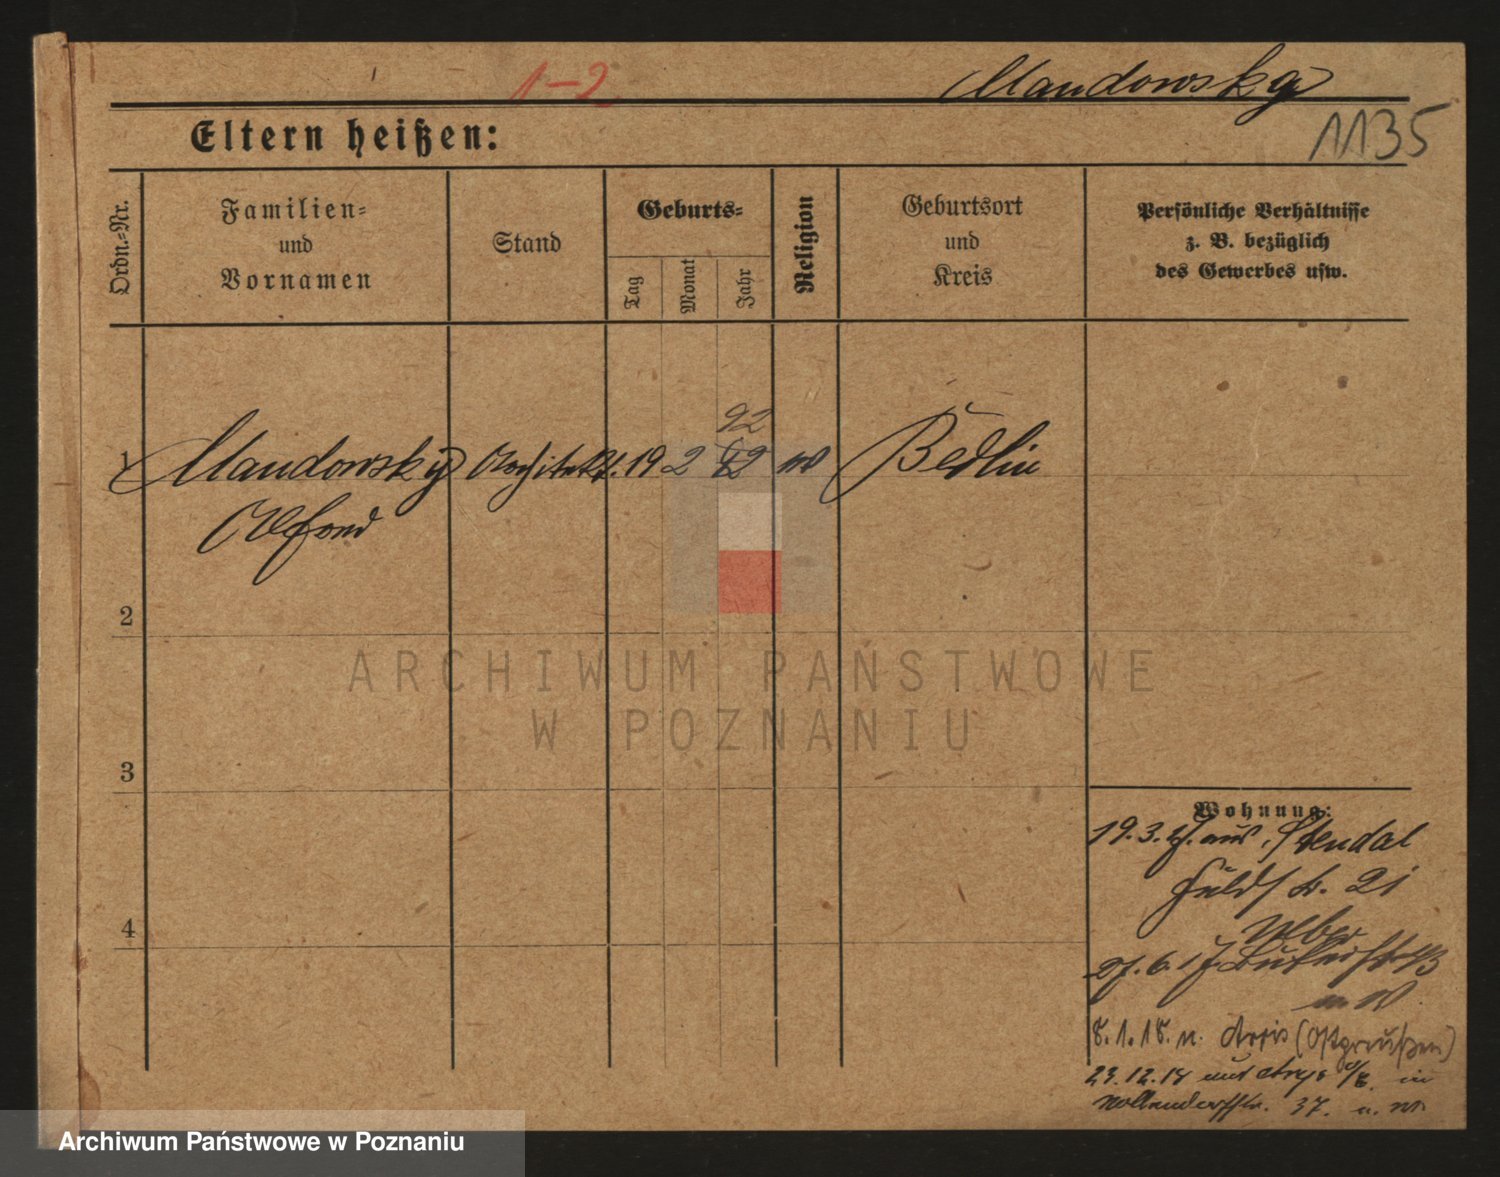 1-2 Mandowsky
1135
Eltern heißen:
Ordn.=Nr.
Familien=
und
Vornamen
Stand
Geburts=
Tag
Monat
Jahr
Religion
Geburtsort
und
Kreis
Persönliche Verhältnisse
z. B. bezüglich
des Gewerbes usw.
92
1 Mandowsky Architekt. 19 2 82 Berlin
Alfred
2
ARCHIWUM PAŃSTWOWE
W POZNANIU
3
4
Wohnung:
19.3. aus Stendal
21
27.6.17
8.1.18. n. Arys (Ostpreußen)
23.12.18 aus Arys in
Nollendorfstr. 37.
Archiwum Państwowe w Poznaniu